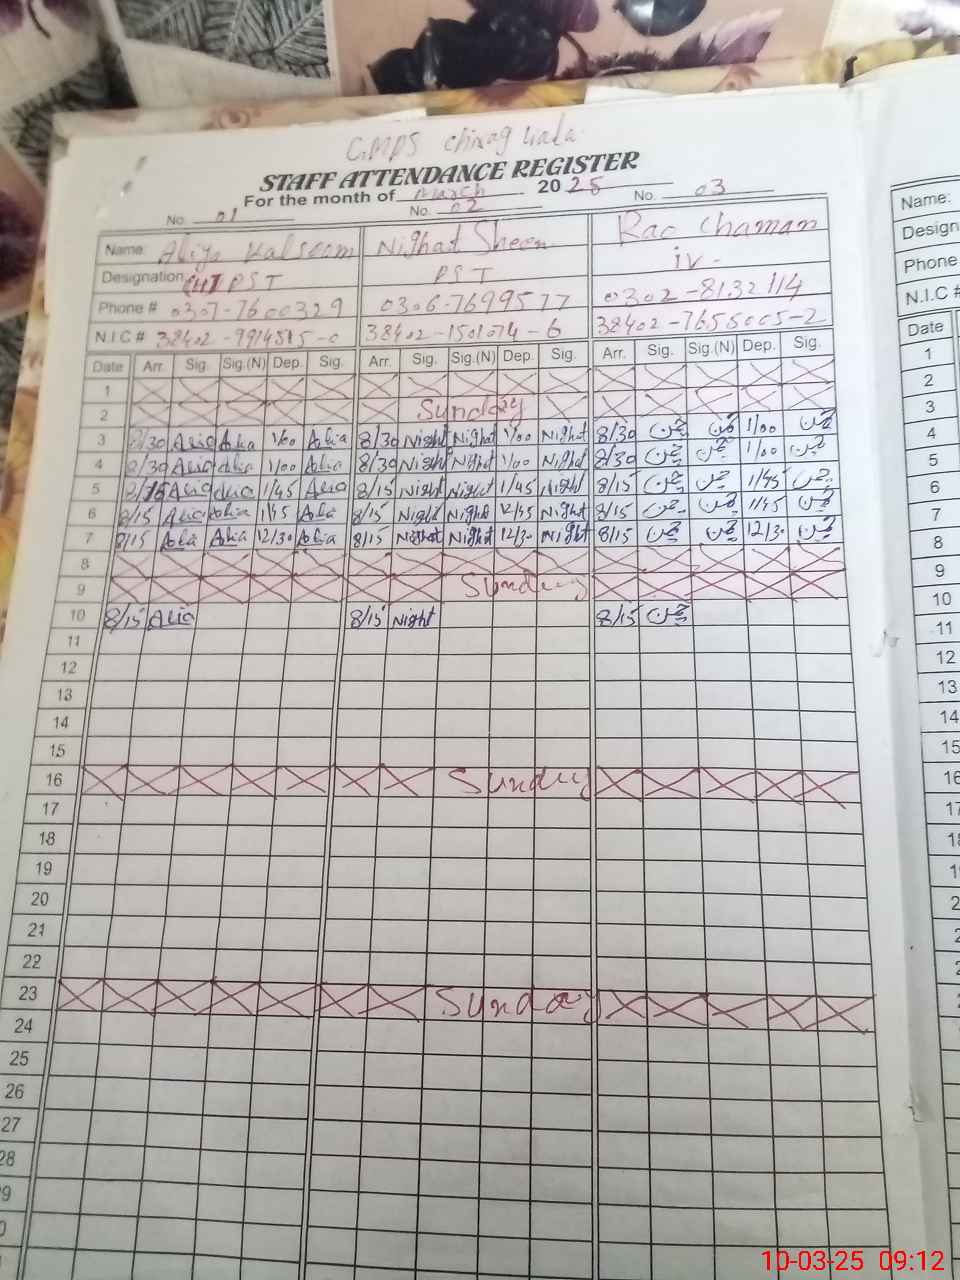 GMPS chirag wala
STAFF ATTENDANCE REGISTER
For the month of March 2025
No. 01 No. 02 No. 03
Name: Aliya Kalsoom Nighat Sheen Rao Chaman
Designation PST PST iv-
Phone # 0307-7600329 0306-7699577 0302-8132114
N.I.C # 38402-9914515-0 38402-1501074-6 38402-7655005-2
Date Arr. Sig. Sig.(N) Dep. Sig. Arr. Sig. Sig.(N) Dep. Sig. Arr. Sig. Sig.(N) Dep. Sig.
1
2 Sunday
3 8/30 Alia Alia 1/00 Alia 8/30 Night Nighat 1/00 Nighat 8/30 چمن چمن 1/00 چمن
4 8/30 Alia Alia 1/00 Alia 8/30 Night Nighat 1/00 Nighat 8/30 چمن چمن 1/00 چمن
5 8/15 Alia Alia 1/45 Alia 8/15 Night Night 1/45 Night 8/15 چمن چمن 1/45 چمن
6 8/15 Alia Alia 1/45 Alia 8/15 Night Night 12/45 Night 8/15 چمن چمن 1/45 چمن
7 8/15 Alia Alia 12/30 Alia 8/15 Nighat Nighat 12/30 Night 8/15 چمن چمن 12/30 چمن
8
9 Sunday
10 8/15 Alia 8/15 Night 8/15 چمن
11
12
13
14
15
16 Sunday
17
18
19
20
21
22
23 Sunday
24
25
26
27
28
Name:
Phone
N.I.C #
Date
1
2
3
4
5
6
7
8
9
10
11
12
13
14
15
16
10-03-25 09:12